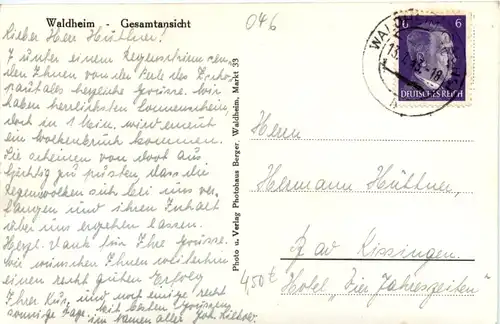 Waldheim - Gesamtansicht
046
Lieber Herr Hüttner!
7 unter einem Regenschirm sen-
den Ihnen von der Perle des Zscho-
pautales herzliche Grüsse. Wir
haben herrlichsten Sonnenschein
doch in 1 Min. wird erneut
ein Wolkenbruch kommen.
Sie scheinen von dort aus
tüchtig zu pusten, dass die
Regenwolken sich bei uns ver-
fangen und ihren Inhalt
über uns ergehen lassen.
Herzl. Dank für Ihre Grüsse.
Wir wünschen Ihnen weiterhin
einen recht guten Erfolg
Ihrer Kur, und noch einige recht
sonnige Tage. Mit besten Grüssen
im Namen aller Joh.
Photo u. Verlag Photohaus Berger, Waldheim, Markt 33
WALDHEIM
6 6
DEUTSCHES REICH
Herrn
Hermann Hüttner,
Bad Kissingen
Hotel "Vier Jahreszeiten"
4,50 €